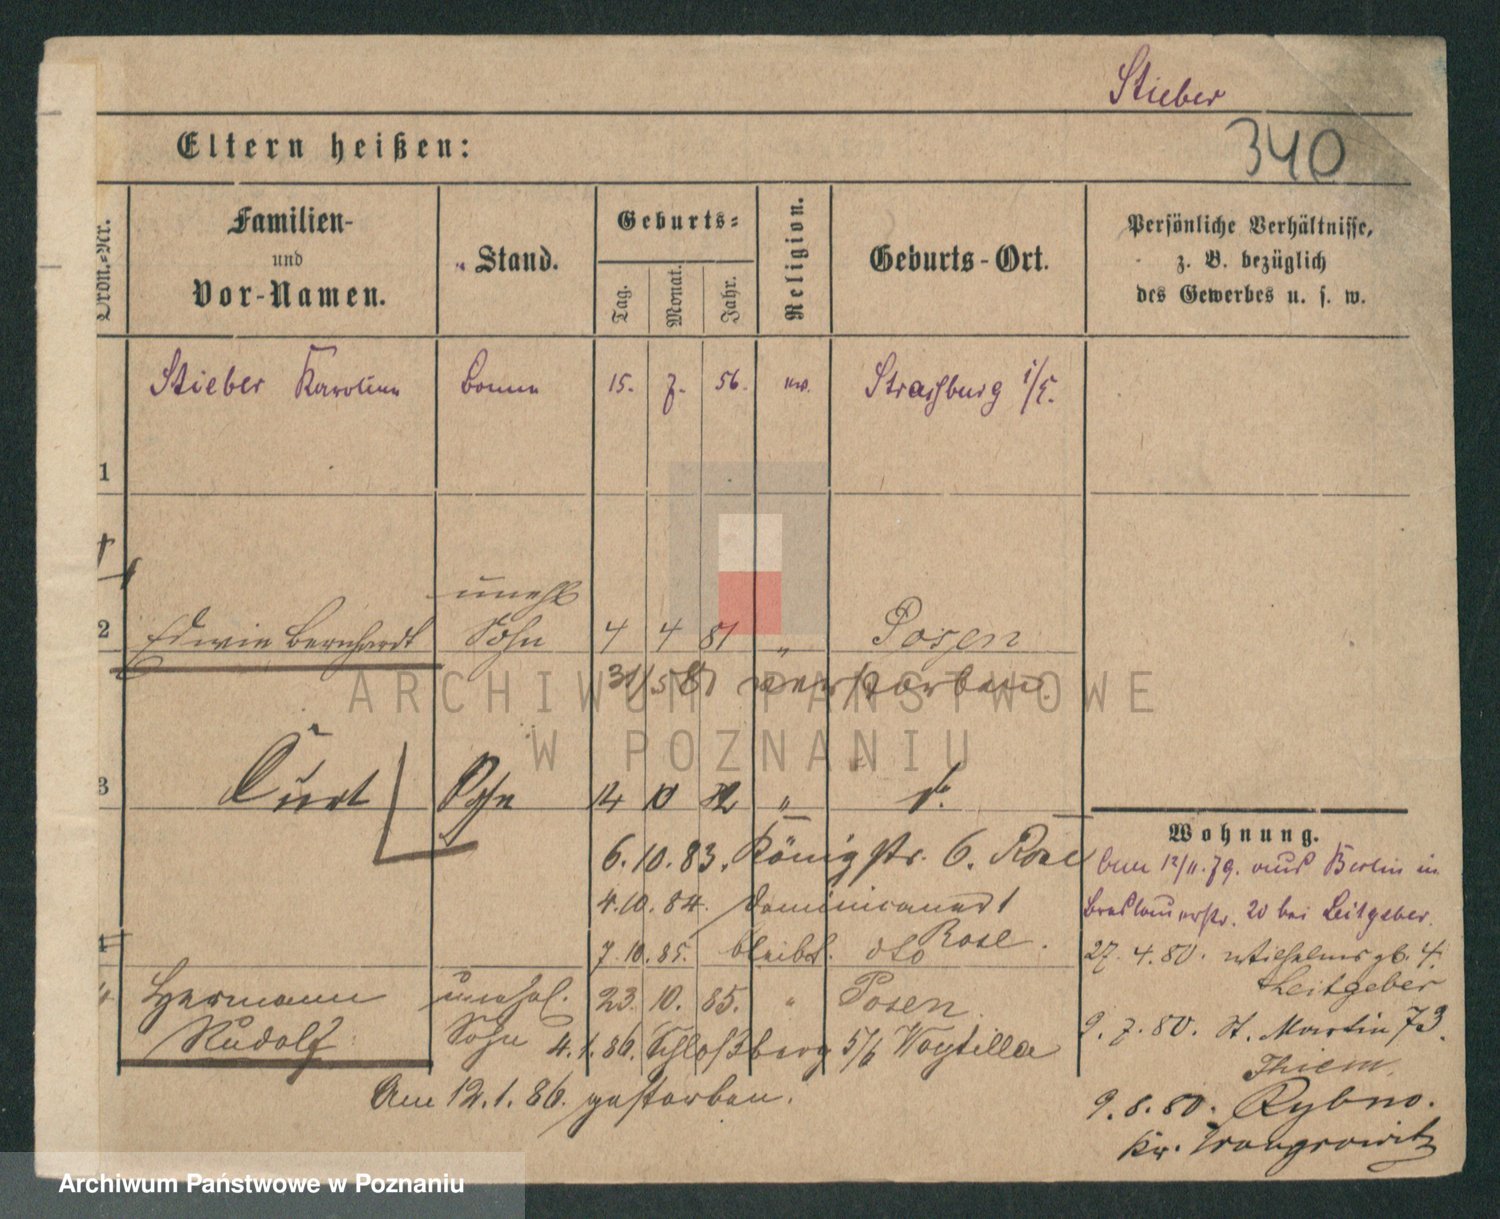 Stieber
340
Eltern heißen:
Ordn.-Nr.
Familien-
und
Vor-Namen.
Stand.
Geburts-
Tag.
Monat.
Jahr.
Religion.
Geburts-Ort.
Persönliche Verhältnisse,
z. B. bezüglich
des Gewerbes u. s. w.
1 Stieber Karoline Bonne 15. 7. 56. ev. Straßburg i/E.
unehl
2 Edwin Bernhardt Sohn 4 4 81 " Posen
31/5 81 verstorben.
ARCHIWUM PAŃSTWOWE
W POZNANIU
3 Curt Sohn 10 "
Wohnung.
6. 10. 83. Königstr. 6. Rose
12/11. 79. aus Berlin in
4. 10. 84. 1
Breslauerstr. 20 bei Leitgeber.
7. 10. 85. bleibt. dto Rose.
27. 4. 80. 4.
Leitgeber
4. Hermann unehel. 23. 10. 85. " Posen.
Rudolf Sohn 4. 1. 86. Schloßberg 5/6 Woytilla
9. 7. 80. St. Martin 73.
Thiem.
Am 12. 1. 86. gestorben.
9. 8. 80. Rybno.
Kr. Wongrowitz
Archiwum Państwowe w Poznaniu